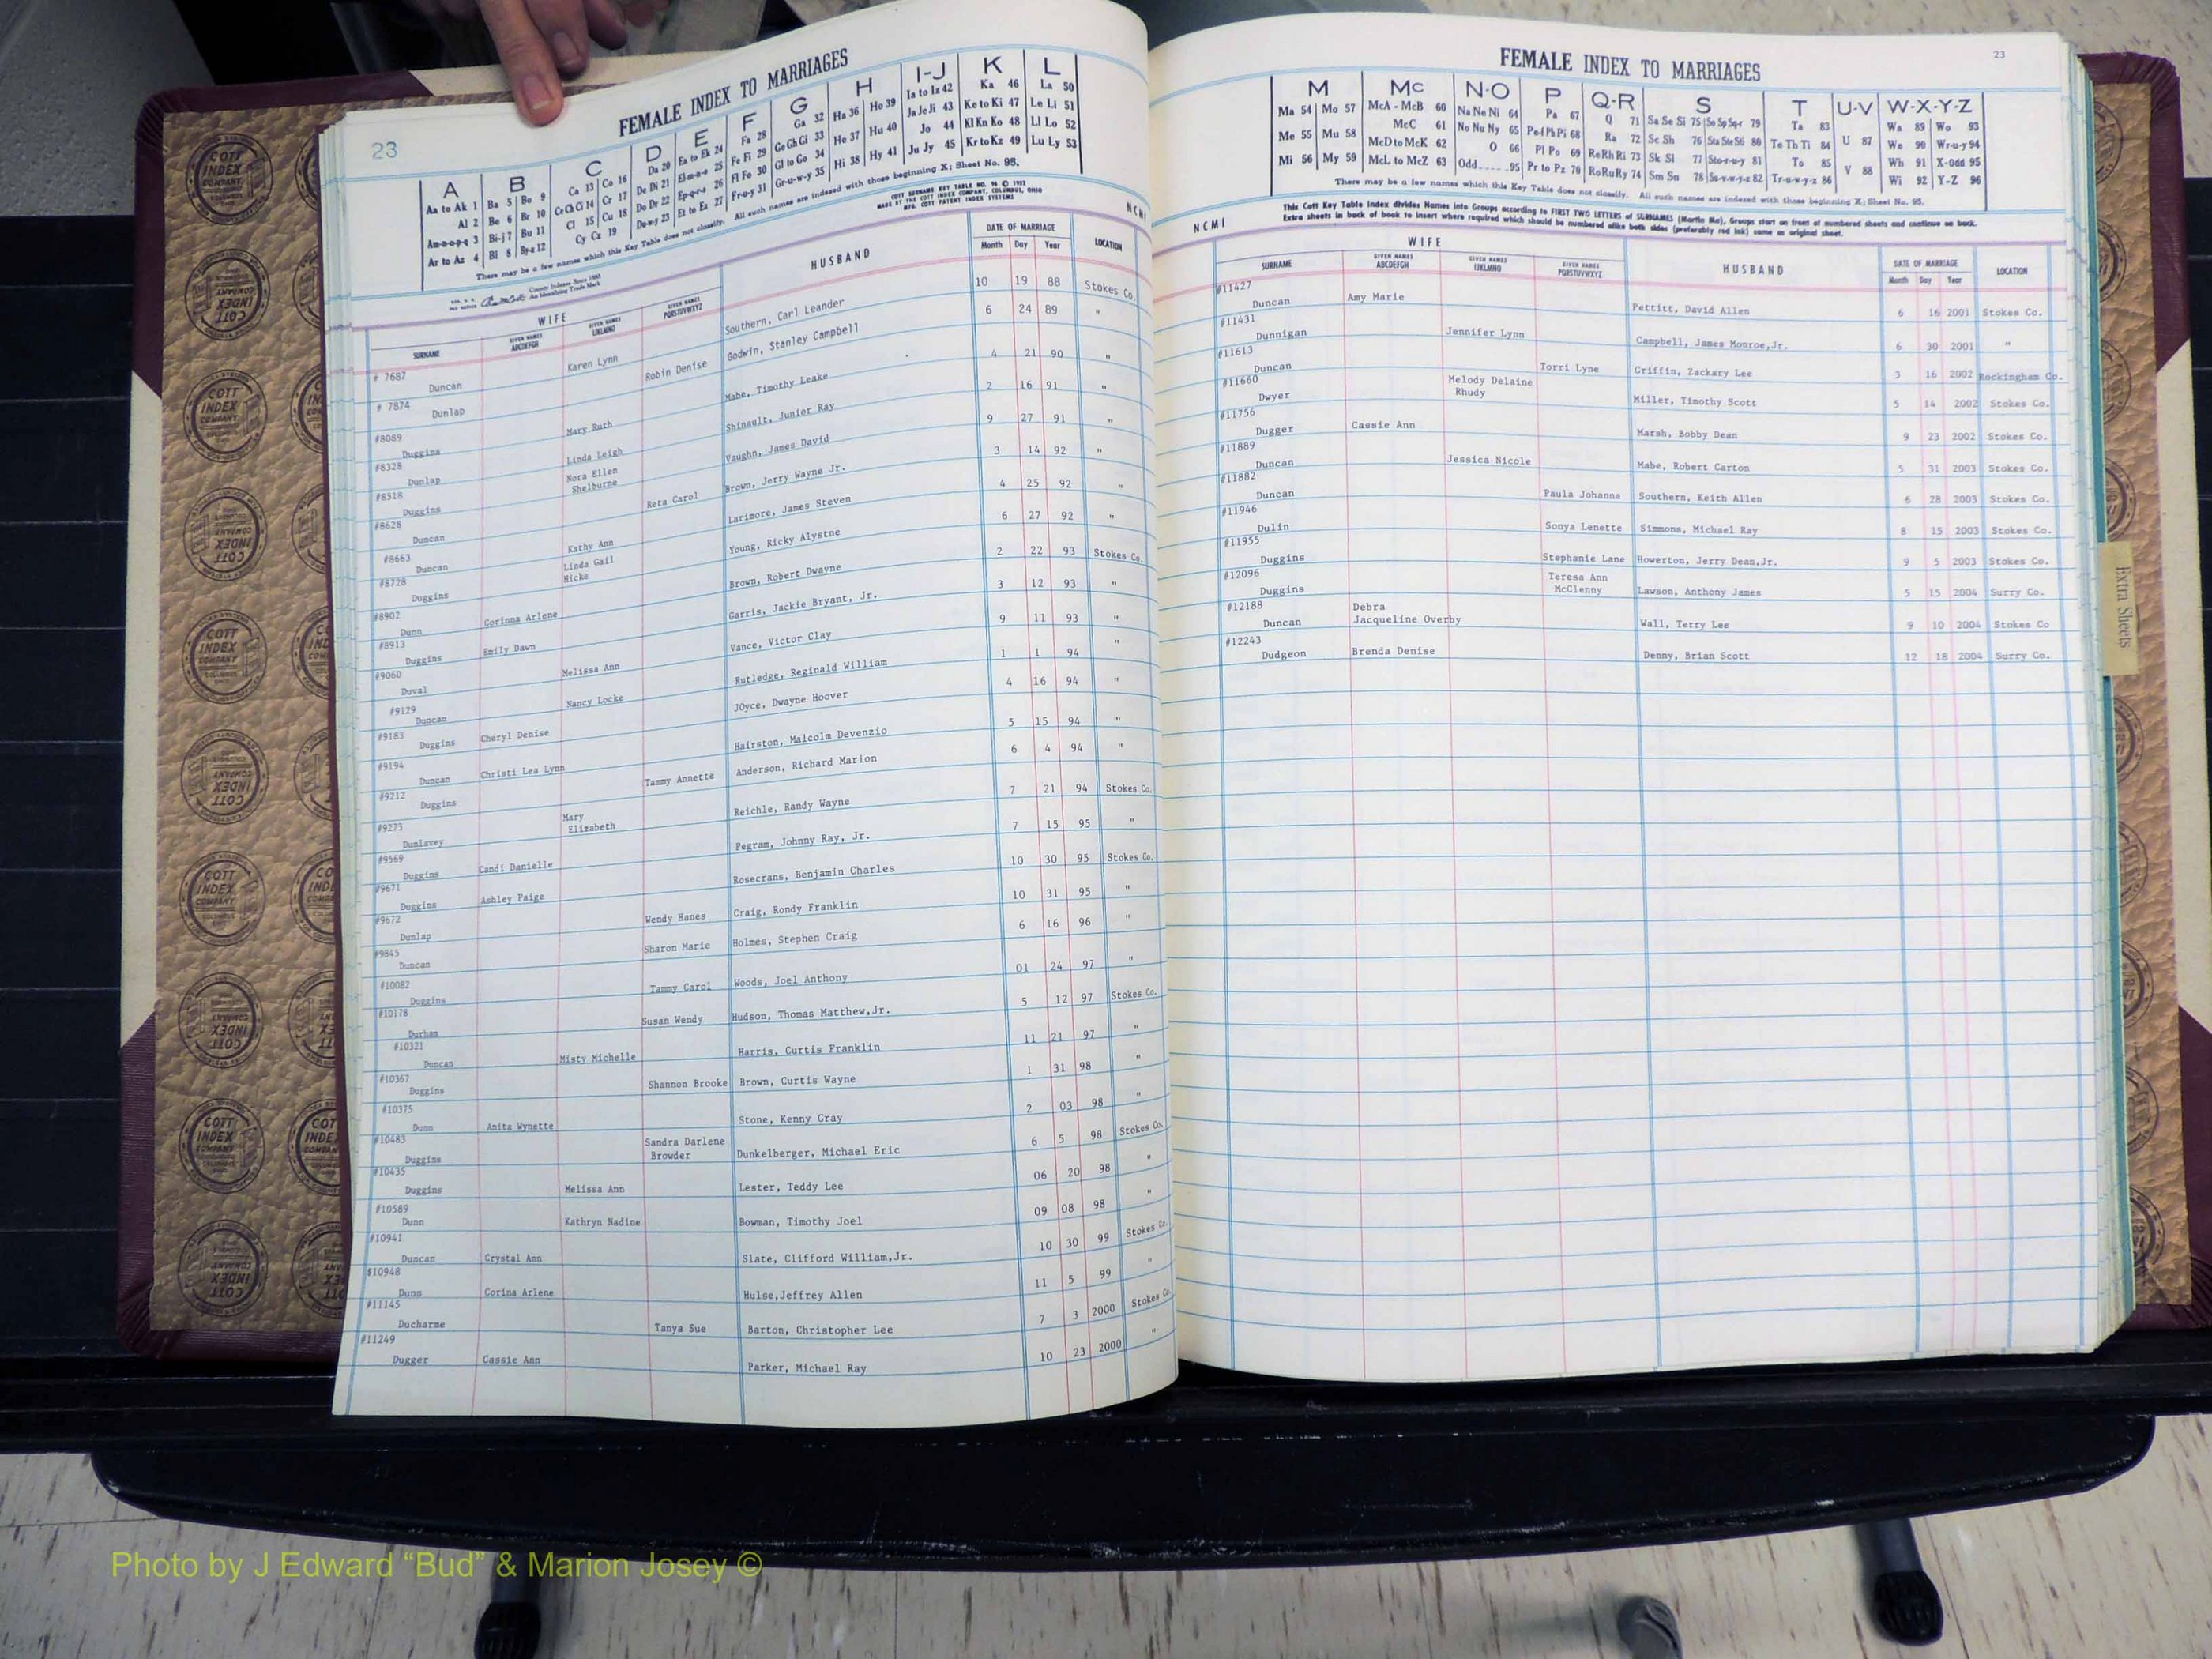 23
FEMALE INDEX TO MARRIAGES
A B C D E F G H I-J K L
Aa to Ak 1 Ba 5 Bo 9 Ca 13 Co 16 Da 20 Ea to Ek 24 Fa 28 Ga 32 Ha 36 Ho 39 Ia to Iz 42 Ka 46 La 50
Al 2 Be 6 Br 10 Ce Ch Ci 14 Cr 17 De Di 21 El-m-n-o 25 Fe Fi 29 Ge Gh Gi 33 He 37 Hu 40 Ja Je Ji 43 Ke to Ki 47 Le Li 51
Am-n-o-p-q 3 Bi-j 7 Bu 11 Cl 15 Cu 18 Do Dr 22 Ep-q-r-s 26 Fl Fo 30 Gl to Go 34 Hi 38 Hy 41 Jo 44 Kl Kn Ko 48 Ll Lo 52
Ar to Az 4 Bl 8 By-z 12 Cy Cz 19 Du-w-y 23 Et to Ez 27 Fr-u-y 31 Gr-u-w-y 35 Ju Jy 45 Kr to Kz 49 Lu Ly 53
There may be a few names which this Key Table does not classify. All such names are indexed with those beginning X; Sheet No. 95.
County Indexes Since 1888
An Identifying Trade Mark
COTT SURNAME KEY TABLE NO. 96 © 1983
MADE BY THE COTT INDEX COMPANY, COLUMBUS, OHIO
MFG. COTT PATENT INDEX SYSTEMS
NCMI
WIFE HUSBAND DATE OF MARRIAGE LOCATION
SURNAME GIVEN NAMES ABCDEFGH GIVEN NAMES IJKLMNO GIVEN NAMES PQRSTUVWXYZ Month Day Year
# 7687 Duncan Karen Lynn Southern, Carl Leander 10 19 88 Stokes Co.
# 7874 Dunlap Robin Denise Godwin, Stanley Campbell 6 24 89 "
#8089 Duggins Mary Ruth Mabe, Timothy Leake 4 21 90 "
#8328 Dunlap Linda Leigh Shinault, Junior Ray 2 16 91 "
#8518 Duggins Nora Ellen Shelburne Vaughn, James David 9 27 91 "
#8628 Duncan Reta Carol Brown, Jerry Wayne Jr. 3 14 92 "
#8663 Duncan Kathy Ann Larimore, James Steven 4 25 92 "
#8728 Duggins Linda Gail Hicks Young, Ricky Alystne 6 27 92 "
#8902 Dunn Corinna Arlene Brown, Robert Dwayne 2 22 93 Stokes Co.
#8913 Duggins Emily Dawn Garris, Jackie Bryant, Jr. 3 12 93 "
#9060 Duval Melissa Ann Vance, Victor Clay 9 11 93 "
#9129 Duncan Nancy Locke Rutledge, Reginald William 1 1 94 "
#9183 Duggins Cheryl Denise JOyce, Dwayne Hoover 4 16 94 "
#9194 Duncan Christi Lea Lynn Hairston, Malcolm Devenzio 5 15 94 "
#9212 Duggins Tammy Annette Anderson, Richard Marion 6 4 94 "
#9273 Dunlavey Mary Elizabeth Reichle, Randy Wayne 7 21 94 Stokes Co.
#9569 Duggins Candi Danielle Pegram, Johnny Ray, Jr. 7 15 95 "
#9671 Duggins Ashley Paige Rosecrans, Benjamin Charles 10 30 95 Stokes Co.
#9672 Dunlap Wendy Hanes Craig, Rondy Franklin 10 31 95 "
#9845 Duncan Sharon Marie Holmes, Stephen Craig 6 16 96 "
#10082 Duggins Tammy Carol Woods, Joel Anthony 01 24 97 "
#10178 Durham Susan Wendy Hudson, Thomas Matthew,Jr. 5 12 97 Stokes Co.
#10321 Duncan Misty Michelle Harris, Curtis Franklin 11 21 97 "
#10367 Duggins Shannon Brooke Brown, Curtis Wayne 1 31 98 "
#10375 Dunn Anita Wynette Stone, Kenny Gray 2 03 98 "
#10483 Duggins Sandra Darlene Browder Dunkelberger, Michael Eric 6 5 98 Stokes Co.
#10435 Duggins Melissa Ann Lester, Teddy Lee 06 20 98 "
#10589 Dunn Kathryn Nadine Bowman, Timothy Joel 09 08 98 "
#10941 Duncan Crystal Ann Slate, Clifford William,Jr. 10 30 99 Stokes Co.
$10948 Dunn Corina Arlene Hulse,Jeffrey Allen 11 5 99 "
#11145 Ducharme Tanya Sue Barton, Christopher Lee 7 3 2000 Stokes Co.
#11249 Dugger Cassie Ann Parker, Michael Ray 10 23 2000 "
FEMALE INDEX TO MARRIAGES
23
M Mc N-O P Q-R S T U-V W-X-Y-Z
Ma 54 Mo 57 McA - McB 60 Na Ne Ni 64 Pa 67 Q 71 Sa Se Si 75 So Sp Sq-r 79 Ta 83 U 87 Wa 89 Wo 93
Me 55 Mu 58 McC 61 No Nu Ny 65 Pe-f Ph Pi 68 Ra 72 Sc Sh 76 Sta Ste Sti 80 Te Th Ti 84 We 90 Wr-u-y 94
McD to McK 62 O 66 Pl Po 69 Re Rh Ri 73 Sk Sl 77 Sto-r-u-y 81 To 85 V 88 Wh 91 X-Odd 95
Mi 56 My 59 McL to McZ 63 Odd......95 Pr to Pz 70 Ro Ru Ry 74 Sm Sn 78 Su-v-w-y-z 82 Tr-u-w-y-z 86 Wi 92 Y-Z 96
There may be a few names which this Key Table does not classify. All such names are indexed with those beginning X; Sheet No. 95.
NCMI
This Cott Key Table Index divides Names into Groups according to FIRST TWO LETTERS of SURNAMES (Martin Ma), Groups start on front of numbered sheets and continue on back.
Extra sheets in back of book to insert where required which should be numbered alike both sides (preferably red ink) same as original sheet.
WIFE HUSBAND DATE OF MARRIAGE LOCATION
SURNAME GIVEN NAMES ABCDEFGH GIVEN NAMES IJKLMNO GIVEN NAMES PQRSTUVWXYZ Month Day Year
#11427 Duncan Amy Marie Pettitt, David Allen 6 16 2001 Stokes Co.
#11431 Dunnigan Jennifer Lynn Campbell, James Monroe,Jr. 6 30 2001 "
#11613 Duncan Torri Lyne Griffin, Zackary Lee 3 16 2002 Rockingham Co.
#11660 Dwyer Melody Delaine Rhudy Miller, Timothy Scott 5 14 2002 Stokes Co.
#11756 Dugger Cassie Ann Marsh, Bobby Dean 9 23 2002 Stokes Co.
#11889 Duncan Jessica Nicole Mabe, Robert Carton 5 31 2003 Stokes Co.
#11882 Duncan Paula Johanna Southern, Keith Allen 6 28 2003 Stokes Co.
#11946 Dulin Sonya Lenette Simmons, Michael Ray 8 15 2003 Stokes Co.
#11955 Duggins Stephanie Lane Howerton, Jerry Dean,Jr. 9 5 2003 Stokes Co.
#12096 Duggins Teresa Ann McClenny Lawson, Anthony James 5 15 2004 Surry Co.
#12188 Duncan Debra Jacqueline Overby Wall, Terry Lee 9 10 2004 Stokes Co
#12243 Dudgeon Brenda Denise Denny, Brian Scott 12 18 2004 Surry Co.
Extra Sheets
COTT INDEX COMPANY COLUMBUS OHIO
Photo by J Edward “Bud” & Marion Josey ©